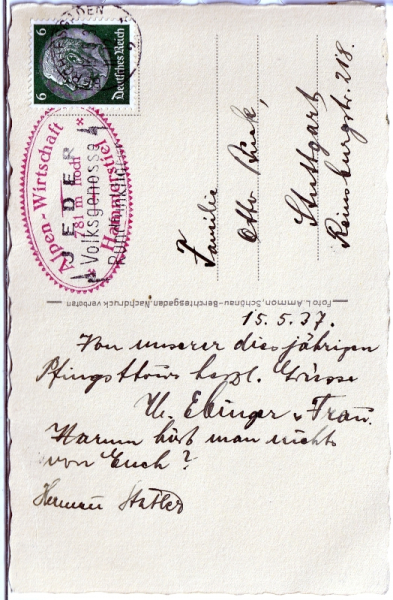 6 6
Deutsches Reich
BERCHTESGADEN
Alpen-Wirtschaft
781 m hoch
Hammerstiel
JEDER
Volksgenosse
Rundfunkhörer
Familie
Otto
Stuttgart
Reinsburgstr. 218.
Foto L. Ammon, Schönau-Berchtesgaden, Nachdruck verboten
15.5.37.
Von unserer diesjährigen
Pfingsttour herzl. Grüsse
Ebinger u Frau.
Warum hört man nichts
von Euch?